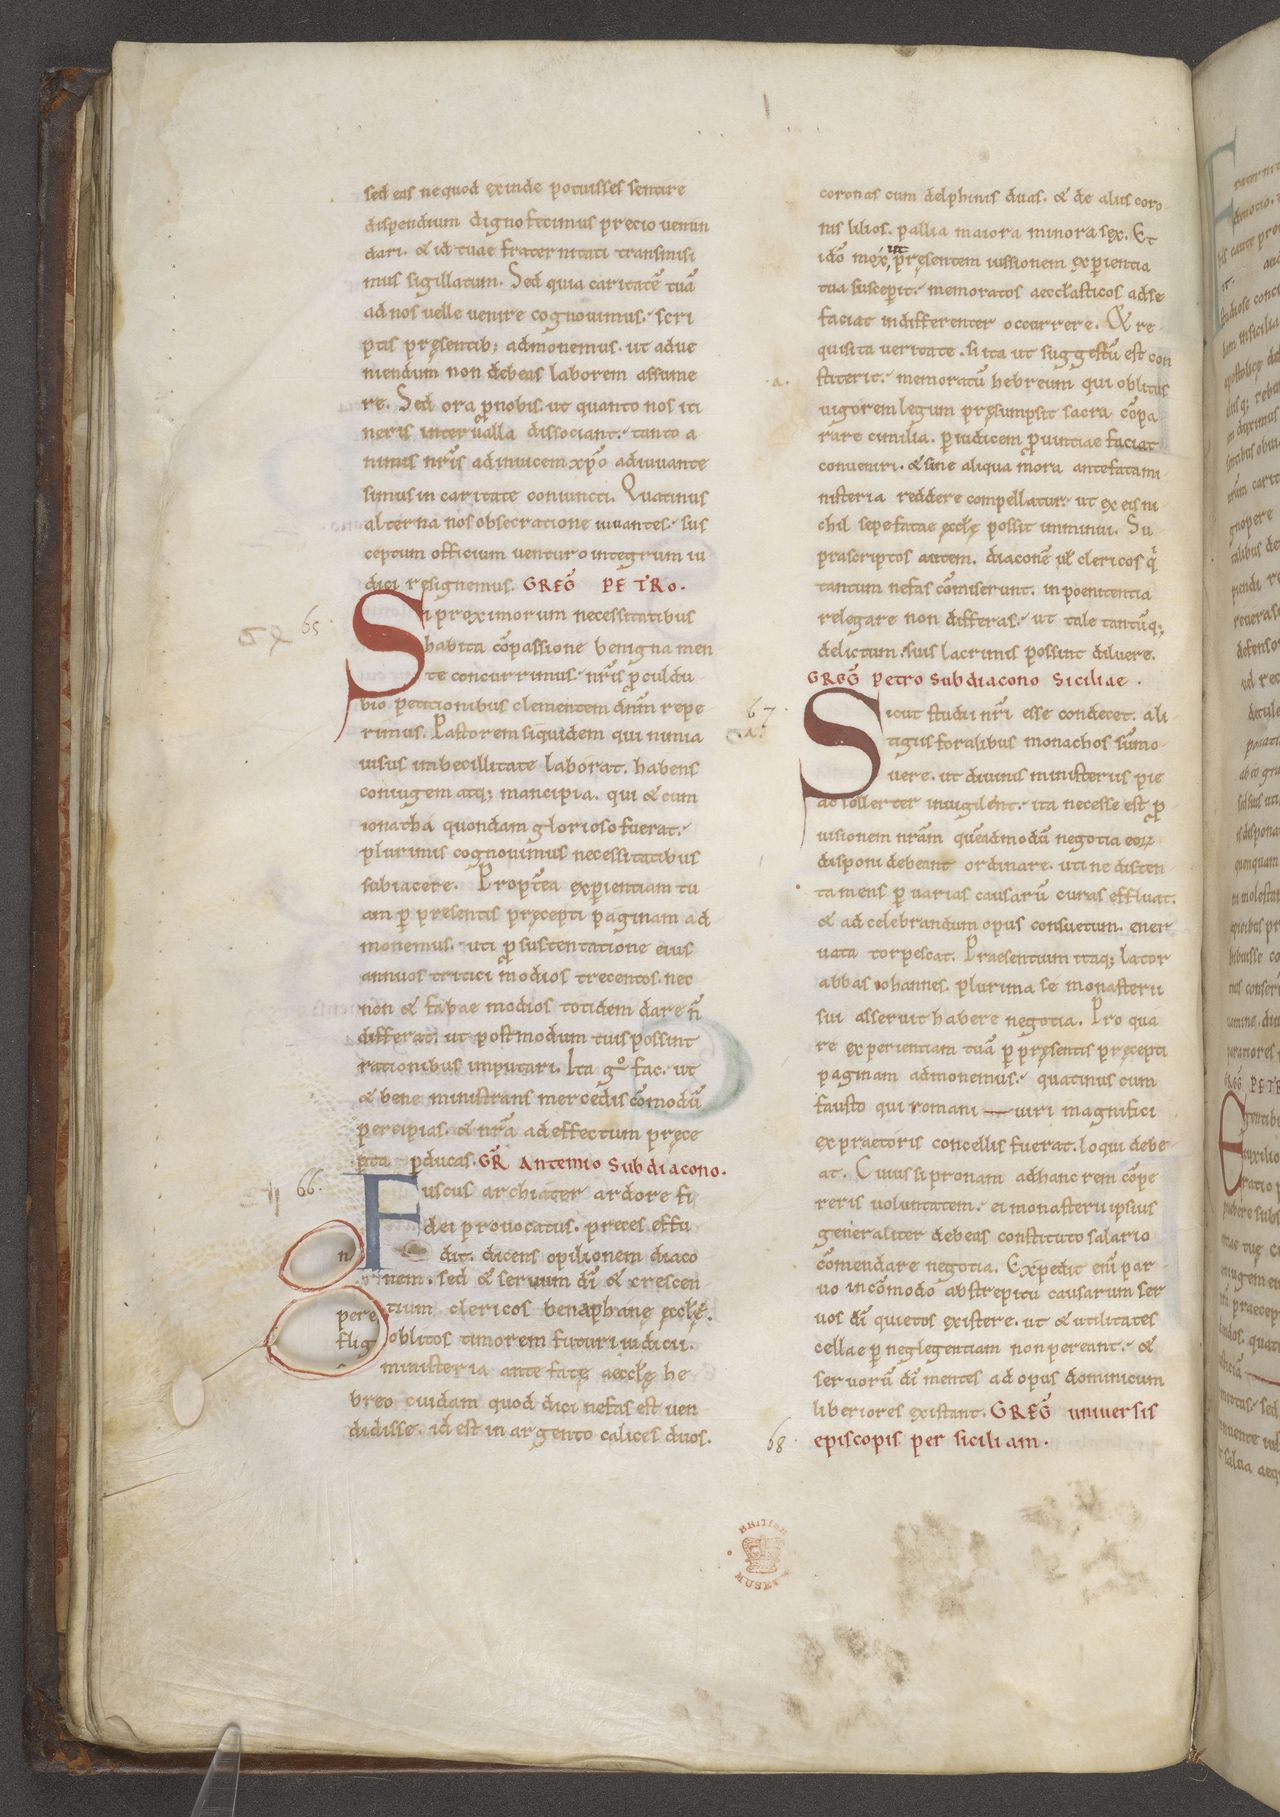 sed eas nequod exinde potuisses sentire
dispendium digno fecimus precio uenun
dari. & id tuae fraternitati transmisi
mus sigillatum. Sed quia caritatē tuā
ad nos uelle uenire cognouimus. scri
ptis pręsentib; admonemus. ut adue
niendum non debeas laborem assume
re. Sed ora ꝓ nobis. ut quanto nos iti
neris interualla dissociant. tanto a
nimis nr̄is adinuicem xp̄o adiuuante
simus in caritate coniuncti. Quatinus
alterna nos obsecratione iuuantes. sus
ceptum officium uenturo integrum iu
dici resignemus. GREG̅ PETRO.
65
Si proximorum necessitatibus
habita cōpassione benigna men
te concurrimus. nr̄is ꝓculdu
bio petitionibus clementem dn̄m repe
rimus. Pastorem siquidem qui nimia
uisus imbecillitate laborat. habens
coniugem atq; mancipia. qui & cum
ionatha quondam glorioso fuerat.
plurimis cognouimus necessitatibus
subiacere. Propt̄ea experientiam tu
am ꝑ presentis pręcepti paginam ad
monemus. uti ꝓ sustentatione eius
annuos tritici modios trecentos. nec
non & fabae modios totidem dare n̄
differat. ut postmodum tuis possint
rationibus imputari. Ita gº fac. ut
& bene ministrans mercedis cōmodū
percipias. & nr̄a ad effectum pręce
pta ꝓducas. GR̄ Antemio Subdiacono.
66.
Fuscus archiater ardore fi
dei prouocatus. preces effu
dit. dicens opilionem diaco
nem. sed & seruum dī & crescen
tium clericos benaphanę ęccłę.
oblitos timorem futuri iudicii.
ministeria ante fatę aeccłę he
breo cuidam quod dici nefas est uen
didisse. id est in argento calices duos.
coronas cum delphinis duas. & de aliis coro
nis lilios. pallia maiora minora sex. Et
idō mox, ut pręsentem iussionem experientia
tua susceperit. memoratos aeccłasticos ad se
faciat indifferenter occurrere. Et re
quisita ueritate. si ita ut suggestū est con
.a.
stiterit. memoratū hebreum qui oblitus
uigorem legum pręsumpsit sacra cōpa
rare cimilia. ꝑ iudicem ꝓuintiae faciat
conueniri. & sine aliqua mora antefata mi
nisteria reddere compellatur. ut ex eis ni
chil sepefatae ęccłę possit imminui. Su
prascriptos autem. diaconē ul̄ clericos q̇
tantum nefas cōmiserunt. in poenitentia
relegare non differas. ut tale tantūq;
delictum. suis lacrimis possint diluere.
GREG̅ Petro Subdiacono Siciliae.
67.
Sicut studii nr̄i esse condecet. a li
tigiis foralibus monachos sūmo
uere. ut diuinis ministeriis pie
ac sollerter inuigilent. ita necesse est ꝓ
uisionem nr̄am quēadmodū negotia eoꝝ
disponi debeant ordinare. uti ne disten
ta mens ꝑ uarias causarū curas effluat.
& ad celebrandum opus consuetum. ener
uata torpescat. Praesentium itaq; lator
abbas iohannes. plurima se monasterii
sui asseruit habere negotia. Pro qua
re experientiam tuā ꝑ pręsentis pręcepti
paginam admonemus. quatinus cum
fausto qui romani uiri magnifici
expraetoris concellis fuerat. loqui debe
at. Cuius si pronam ad hanc rem cōpe
reris uoluntatem. ei monasterii ipsius
generaliter debeas constituto salario
cōmendare negotia. Expedit enī par
uo incōmodo abstrepitu causarum ser
uos dī quietos existere. ut & utilitates
cellae ꝑ neglegentiam non pereant. &
seruorū dī mentes ad opus dominicum
liberiores existant. GREG̅ universis
68.
episcopis per siciliam.
BRITISH
MUSEUM